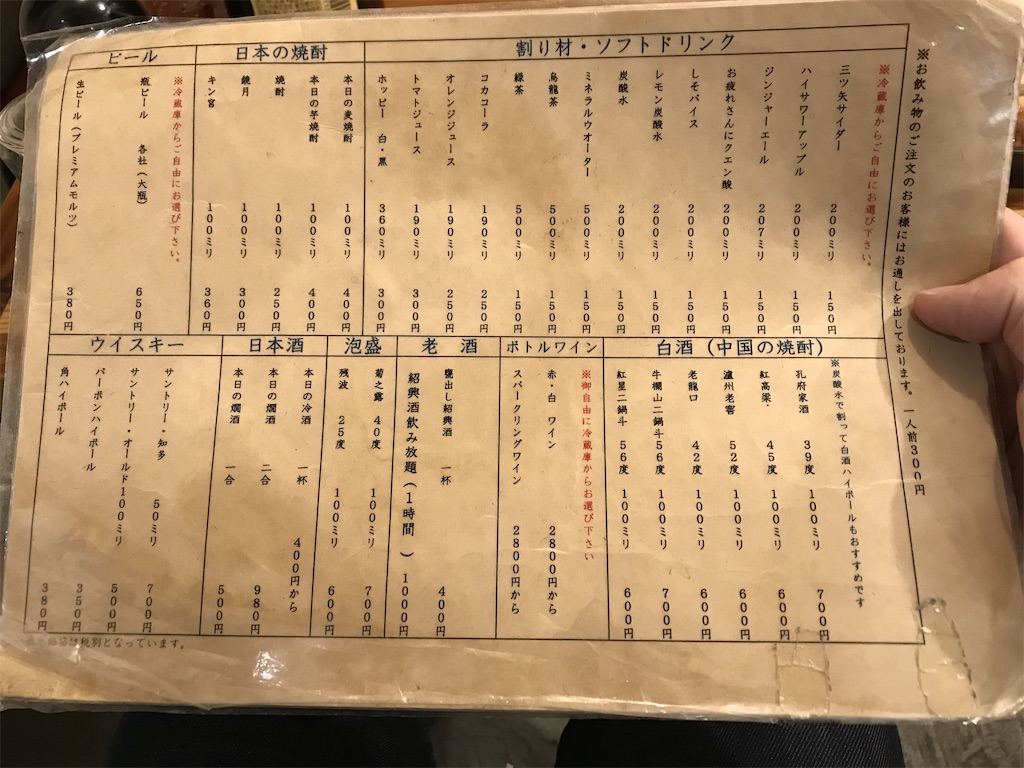 ※お飲み物のご注文のお客様にはお通しを出しております。一人前300円
割り材・ソフトドリンク
※冷蔵庫からご自由にお選び下さい。
三ツ矢サイダー 200ミリ 150円
ハイサワーアップル 200ミリ 150円
ジンジャーエール 207ミリ 150円
お疲れさんにクエン酸 200ミリ 150円
しそバイス 200ミリ 150円
レモン炭酸水 200ミリ 150円
炭酸水 200ミリ 150円
ミネラルウオーター 500ミリ 150円
烏龍茶 500ミリ 150円
緑茶 500ミリ 150円
コカコーラ 190ミリ 250円
オレンジジュース 190ミリ 250円
トマトジュース 190ミリ 300円
ホッピー 白・黒 360ミリ 300円
日本の焼酎
本日の麦焼酎 100ミリ 400円
本日の芋焼酎 100ミリ 400円
焼酎 100ミリ 250円
鏡月 100ミリ 300円
キン宮 100ミリ 360円
ビール
※冷蔵庫からご自由にお選び下さい。
瓶ビール 各社(大瓶) 650円
生ビール(プレミアムモルツ) 380円
白酒(中国の焼酎)
※炭酸水で割って白酒ハイボールもおすすめです
孔府家酒 39度 100ミリ 700円
紅高粱・ 45度 100ミリ 600円
瀘州老窖 52度 100ミリ 600円
老龍口 42度 100ミリ 600円
牛欄山二鍋斗 56度 100ミリ 700円
紅星二鍋斗 56度 100ミリ 600円
ボトルワイン
※御自由に冷蔵庫からお選び下さい
赤・白 ワイン 2800円から
スパークリングワイン 2800円から
老酒
甕出し紹興酒 一杯 400円
紹興酒飲み放題(1時間 ) 1000円
泡盛
菊之露 40度 100ミリ 700円
残波 25度 100ミリ 600円
日本酒
本日の冷酒 一杯 400円から
本日の燗酒 二合 980円
本日の燗酒 一合 500円
ウイスキー
サントリー・知多 50ミリ 700円
サントリー・オールド100ミリ 500円
バーボンハイボール 350円
角ハイボール 380円
は税別となっています。